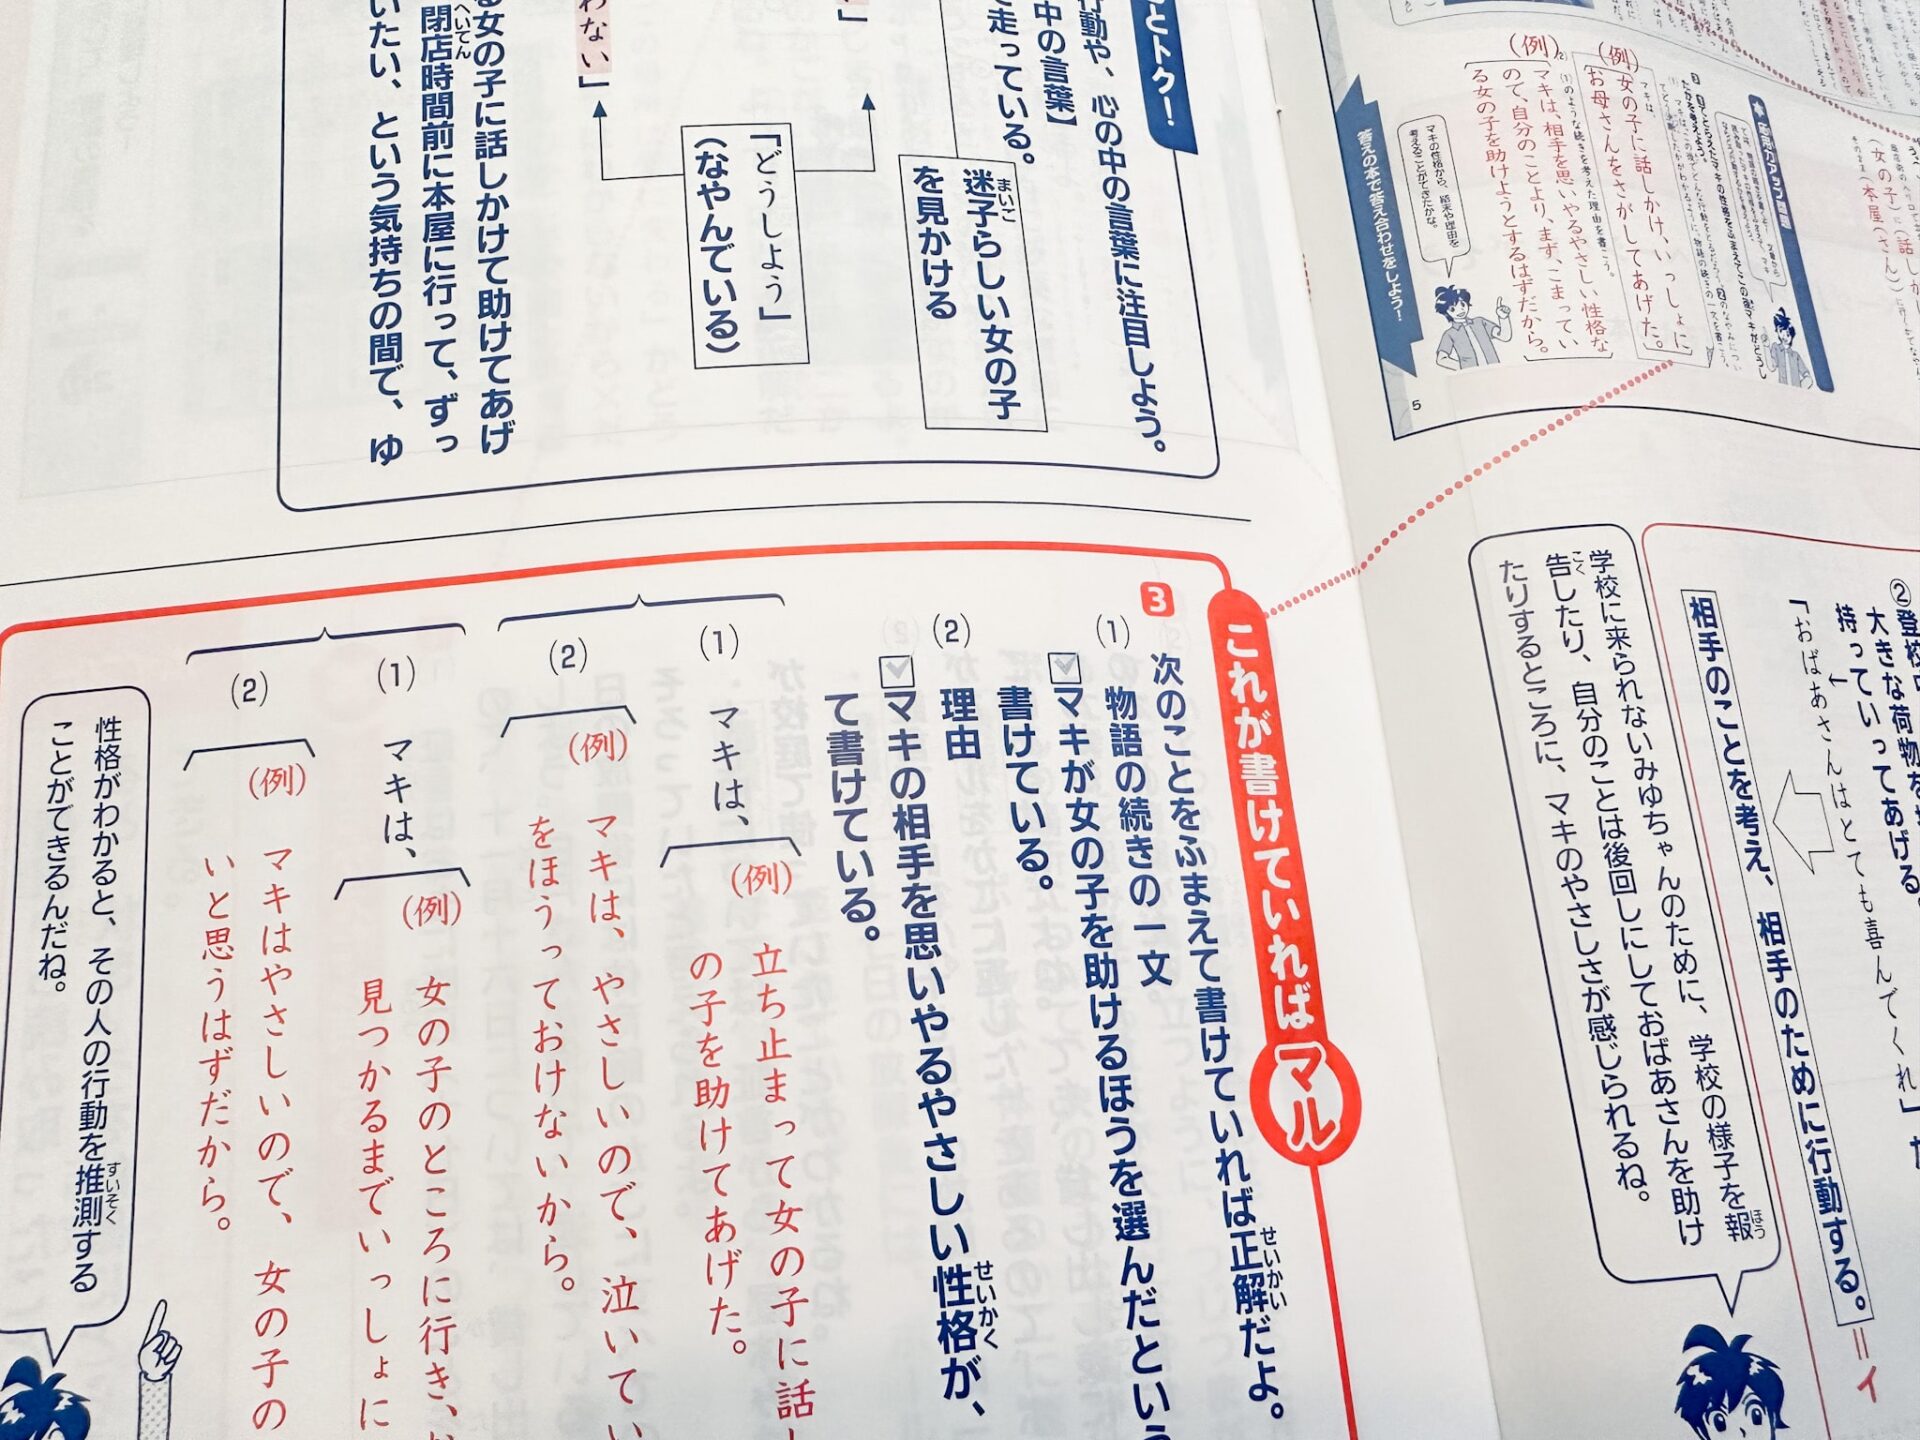 とトク！
動や、心の中の言葉に注目しよう。
中の言葉】
て走っている。
迷子らしい女の子
まいご
を見かける
「どうしよう」
（なやんでいる）
わない」
る女の子に話しかけて助けてあげ
閉店時間前に本屋に行って、ずっ
へいてん
いたい、という気持ちの間で、ゆ
（例）
女の子に話しかけ、いっしょに
お母さんをさがしてあげた。
（例）
マキは、相手を思いやるやさしい性格な
ので、自分のことより、まず、こまってい
る女の子を助けようとするはずだから。
マキの性格から、結末や理由を
考えることができたかな。
答えの本で答え合わせをしよう！
5
②登校中
大きな荷物を
持っていってあげる。
「おばあさんはとても喜んでくれ」た
相手のことを考え、相手のために行動する。＝イ
学校に来られないみゆちゃんのために、学校の様子を報
ほう
告したり、自分のことは後回しにしておばあさんを助け
こく
たりするところに、マキのやさしさが感じられるね。
これが書けていればマル
3
次のことをふまえて書けていれば正解だよ。
せいかい
(1)
物語の続きの一文
マキが女の子を助けるほうを選んだという
書けている。
(2)
理由
マキの相手を思いやるやさしい性格が、
せいかく
て書けている。
(1)
マキは、
（例）
立ち止まって女の子に話し
の子を助けてあげた。
(2)
（例）
マキは、やさしいので、泣いてい
をほうっておけないから。
(1)
マキは、
（例）
女の子のところに行き、お
見つかるまでいっしょに
(2)
（例）
マキはやさしいので、女の子の
いと思うはずだから。
性格がわかると、その人の行動を推測する
すいそく
ことができるんだね。